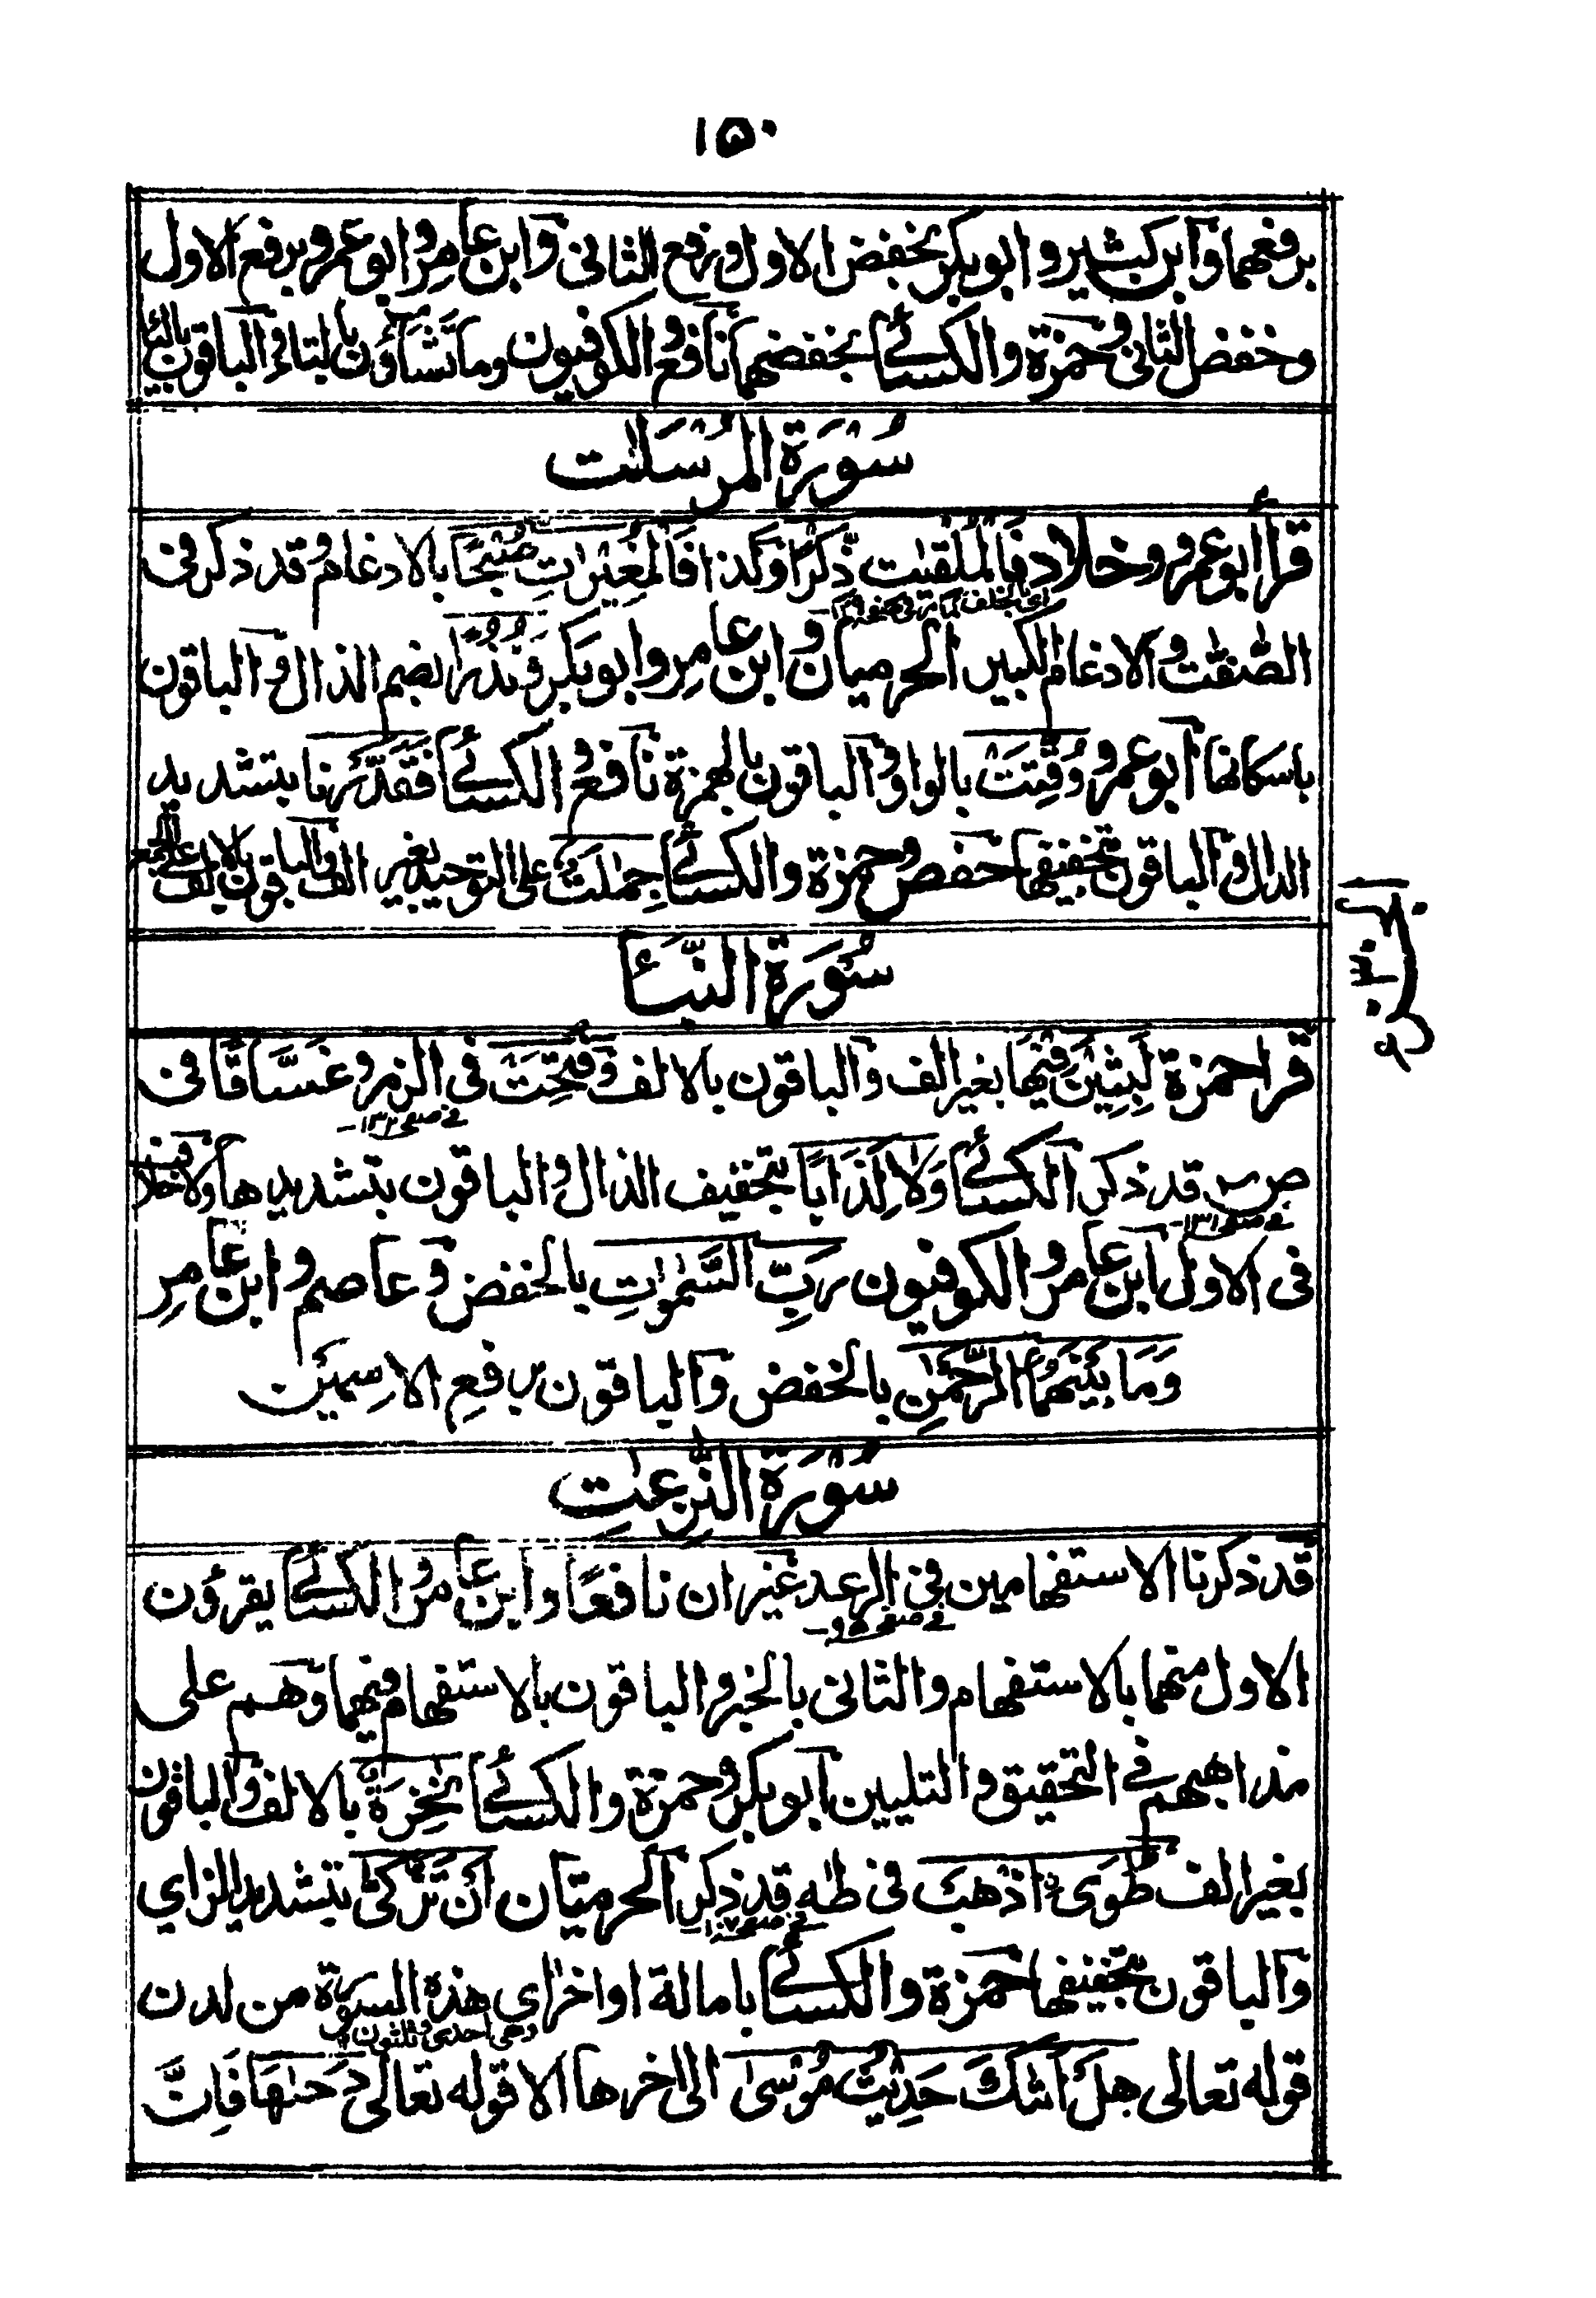 ۱۵۰
برفعهما وابن كثير وابوبكر بخفض الاول ورفع الثانى وابن عامر وابوعمرو برفع الاول
وخفض الثانى وحمزة والكسائى بخفضهما نافع والكوفيون وما تشاؤن بالتاء والباقون بالياء
سُوْرَة المرْسَلٰت
قرأ أبوعمرو وخلاد فَالْملقيٰت ذِّكْرًا وكذا فَالْمُغِيْرٰتِ صُّبْحًا بالادغام وقد ذكر فى
اى بالخلف كما مر فى صفحه
الصّٰفّٰت والادغام الكبير الحرميان وابن عامر وابوبكر اونُذُرًا بضم الذال والباقون
باسكانها ابوعمرو وُقِّتَتْ بالواو والباقون بالهمزة نافع والكسائى فَقَدَّرْنا بتشديد
الدال والباقون بتخفيفها حفص وحمزة والكسائى جِمٰلَتٌ على التوحيد بغير الف والباقون بالالف على الجمع
سُوْرَة النَّبَأ
قرا حمزة لَبِثِيْنَ فِيْهَا بغير الف والباقون بالالف وَفُتِحَتْ فى الزمر وغَسَّاقًا فى
فى صفحه ۱۳۲
ص قد ذكر الكسائى وَلَا كِذَابًا بتخفيف الذال والباقون بتشديدها ولا خلاف
فى صفحه ۱۳۱
فى الاول ابن عامر والكوفيون رَبِّ السَّمٰوٰتِ بالخفض وعاصم وابن عامر
وَمَا بَيْنَهُمَا الرَّحْمٰنِ بالخفض والباقون برفع الاسمين
سُوْرَة النّٰزِعٰتِ
قد ذكرنا الاستفهامين فى الرعد غير ان نافعًا وابن عامر والكسائى يقرؤن
فى صفحه ۹۵
الاول منهما بالاستفهام والثانى بالخبر والباقون بالاستفهام فيهما وهم على
مذاهبهم فى التحقيق والتليين ابوبكر وحمزة والكسائى نٰخِرَةً بالالف والباقون
بغير الف طُوًى اذْهَبْ فى طٰه قد ذكر الحرميان اَنْ تَزَّكّٰى بتشديد الزاي
فى صفحه ۱۰۷
والباقون بتخفيفها حمزة والكسائى بامالة اواخر اى هذه السورة من لدن
وهى احدى وثلثون
قوله تعالى هَلْ اَتٰىكَ حَدِيْثُ مُوْسٰى الى اخرها الا قوله تعالى دَحٰىهَا فَاِنَّ